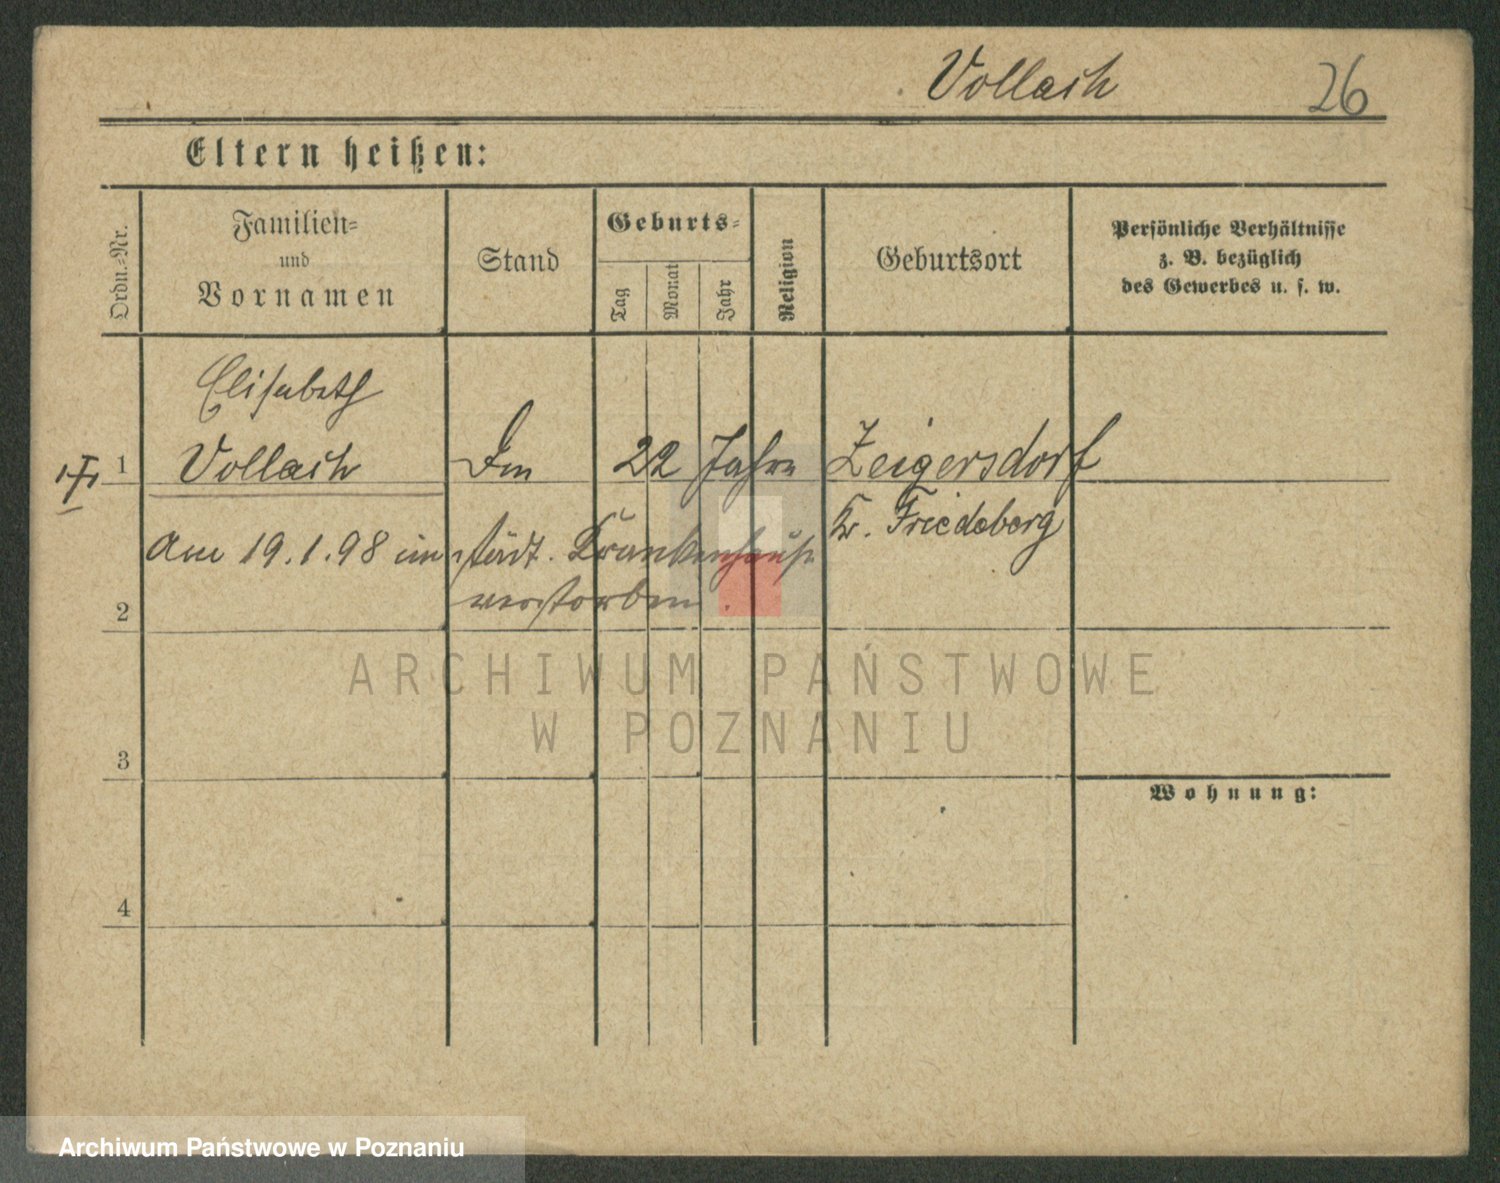 Vollach 26
Eltern heißen:
Ordn.-Nr.
Familien-
und
Vornamen
Stand
Geburts-
Tag
Monat
Jahr
Religion
Geburtsort
Persönliche Verhältnisse
z. B. bezüglich
des Gewerbes u. s. w.
Elisabeth
1 Vollach 22 Jahre Zeigersdorf
Kr. Friedeberg
am 19.1.98 im städt. Krankenhause
2 verstorben.
3
Wohnung:
4
ARCHIWUM PAŃSTWOWE
W POZNANIU
Archiwum Państwowe w Poznaniu